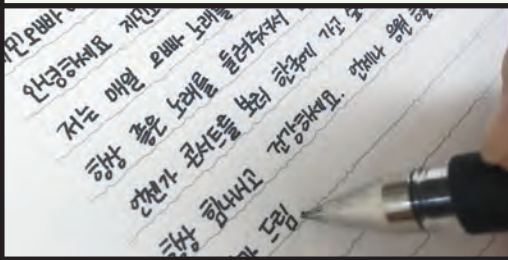 지민오빠
안녕하세요 지민오
저는 매일 오빠 노래를
항상 좋은 노래를 들려주셔서
언젠가 콘서트를 보러 한국에 가고
항상 힘내시고 건강하세요. 언제나 응원
드림